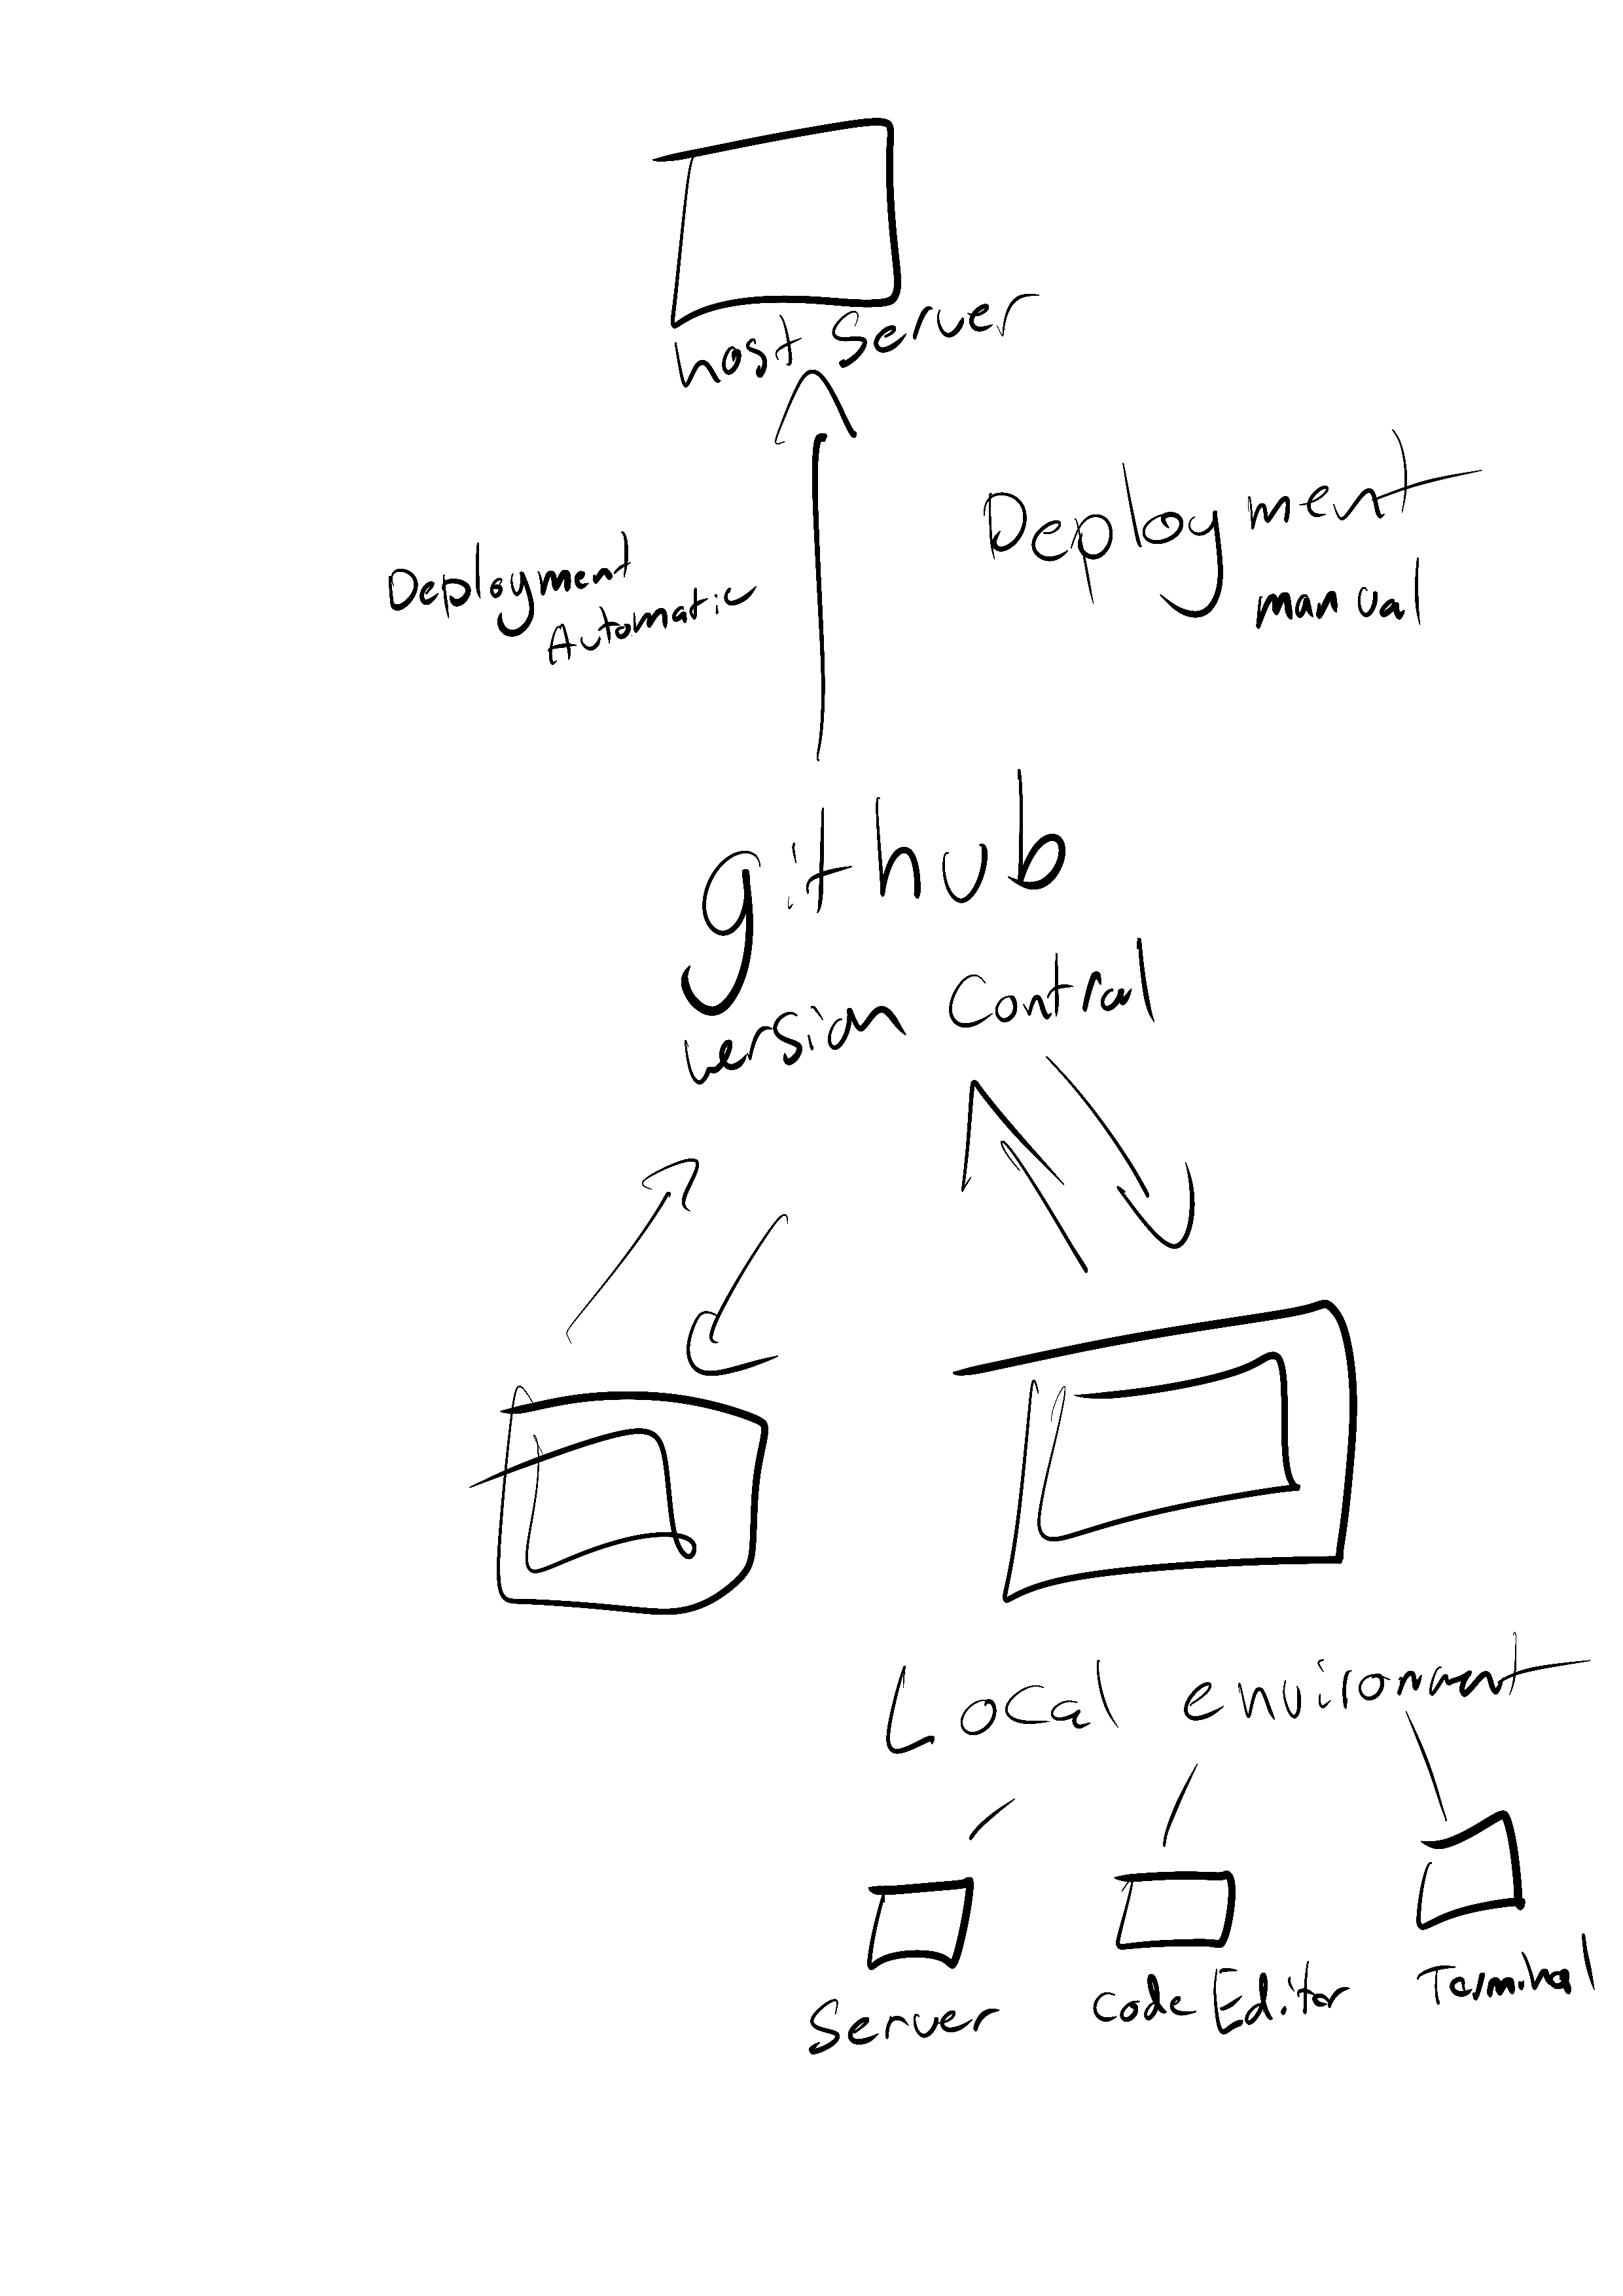 host Server
Deployment
manual
Deployment
Automatic
github
version Control
Local environment
Server
Code Editor
Terminal